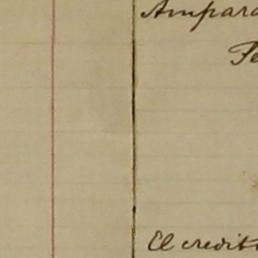 Ampara
Pe
El credit